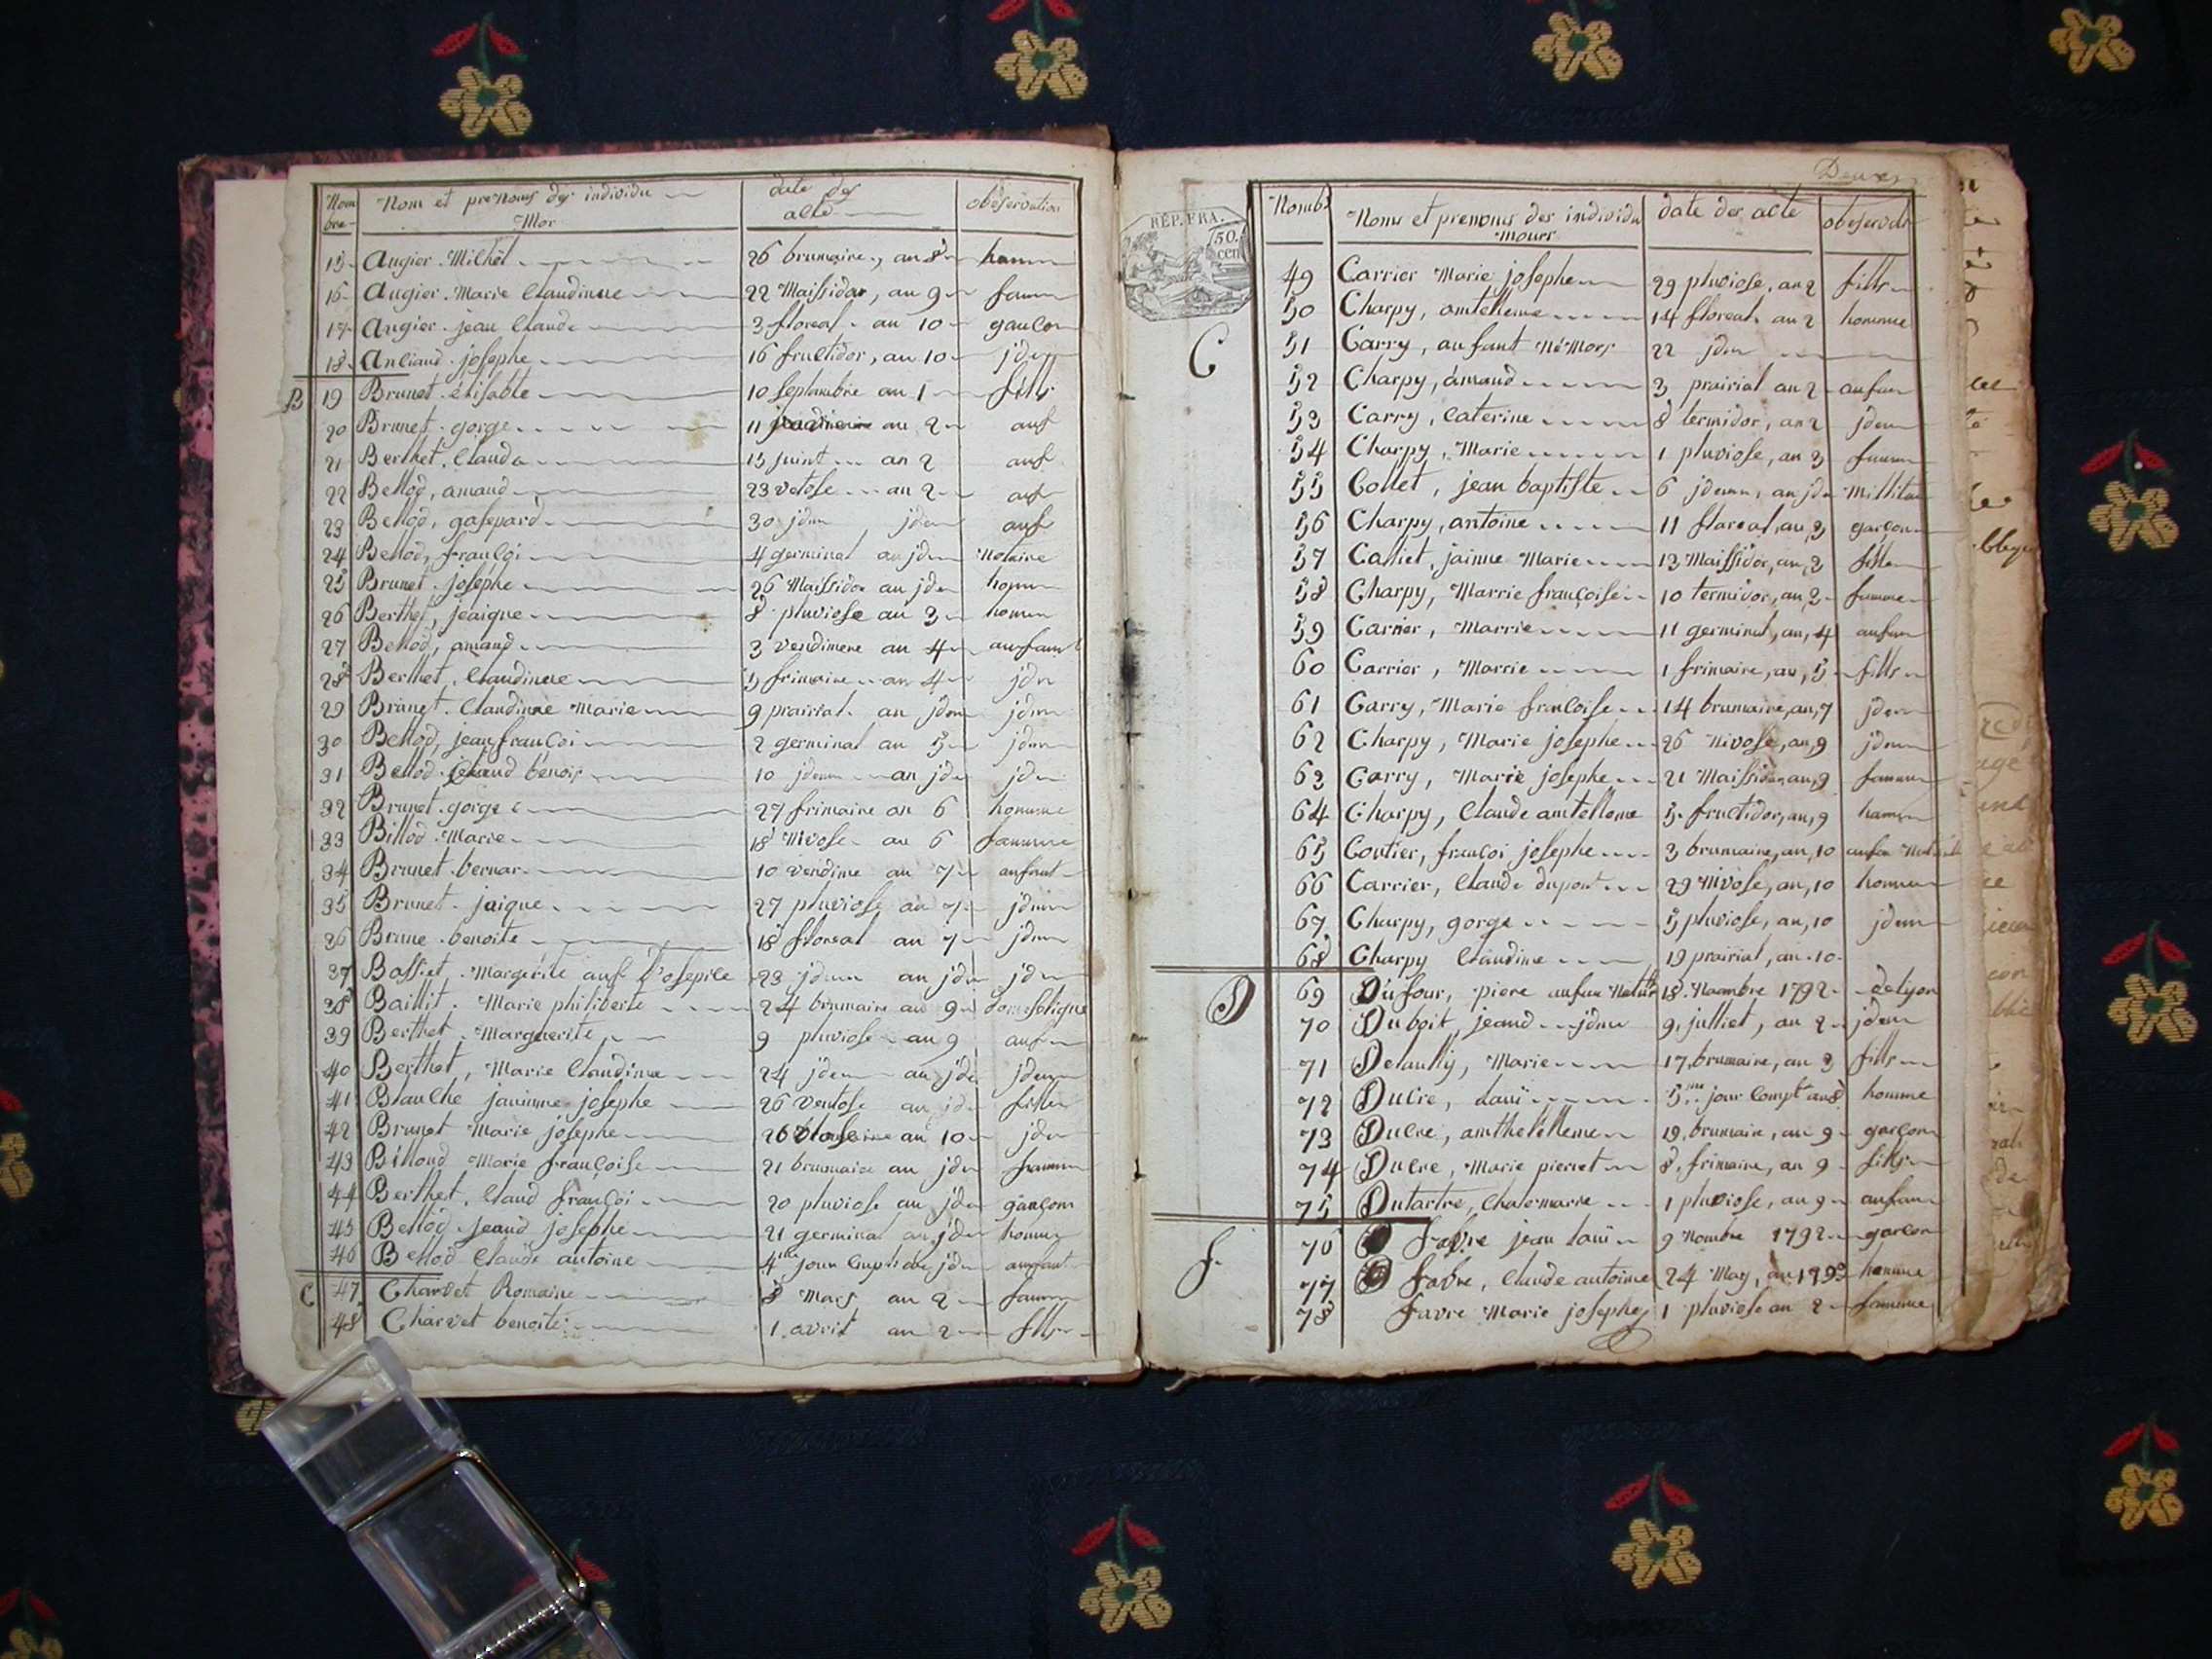 Nom bre
Nom et prenoms des individu Mor
date des acte
observation
15 Augier Michel 26 brumaire, an 8 homm
16 Augier Marie Claudinne 22 Maissidor, an 9 famm
17 Augier jean Claude 3 floreal an 10 garçon
18 Anciaud josephe 16 fructidor, an 10 jdem
B 19 Brunet élisable 10 septambre an 1 fills
20 Brunet gorge 11 an 2 anf
21 Berthet, Claude 15 juint an 2 anf
22 Bellod, amand 23 votose an 2 anf
23 Bellod, gasepard 30 jdem jdem anf
24 Bellod, françoi 4 germinal an jdem Notaire
25 Brunet josephe 26 Maissidor an jdem homm
26 Berthet, jeaique 8 pluviose an 3 homm
27 Bellod, amand 3 vendimere an 4 anfant
28 Berthet, Claudinne 5 frimaire an 4 jdem
29 Brunet Claudinne Marie 9 prairial an jdem jdem
30 Bellod, jean françoi 2 germinal an 5 jdem
31 Bellod benoit 10 jdem an jdem jdem
32 Brunet gorge 27 frimaire an 6 homme
33 Billod Marie 18 Nivose an 6 famme
34 Brunet bernar 10 vendime an 7 anfant
35 Brunet jaique 27 pluviose an 7 jdem
36 Brune benoite 18 floreal an 7 jdem
37 Bassiet, Margerite anf l'osepice 23 jdem an jdem jdem
38 Baillit Marie philiberte 24 brumaire an 9 domesetique
39 Berthet Marguerite 9 pluviose an 9 anf
40 Berthet, Marie Claudinne 24 jdem an jdem jdem
41 Blanche janinne josephe 26 ventose an jdem fille
42 Brunet Marie josephe 26 an 10 jdem
43 Billoud Marie françoise 21 brumaire an jdem famme
44 Berthet, Claud françoi 20 pluviose an jdem garçon
45 Bellod jeand josephe 21 germinal an jdem homme
46 Bellod Claude antoine 4me jour an jdem anfant
C 47 Charvet Romaine 8 Mars an 2 famm
48 Charvet benoite 1 avrit an 2 fills
Deux
REP. FRA.
50. cen
Nomb
Noms et prenoms des individu mours
date des acte
observati
C
49 Carrier Marie josephe 29 pluviose, an 2 fills
50 Charpy, amtelleme 14 floreal an 2 homme
51 Carry, anfant Né Mors 22 jdem
52 Charpy, amand 3 prairial an 2 anfan
53 Carry, caterine 8 termidor, an 2 jdem
54 Charpy, Marie 1 pluviose, an 3 famm
55 Collet, jean baptiste 6 jdemm, an jdem Millitai
56 Charpy, antoine 11 floreal, an, 3 garçon
57 Calliet, jainne Marie 13 Maissidor, an, 3 fille
58 Charpy, Marrie françoise 10 termidor, an, 3 famme
59 Carrier, Marrie 11 germinal, an, 4 anfan
60 Carrier, Marrie 1 frimaire, an, 5 fills
61 Carry, Marie françoise 14 brumaire, an, 7 jdem
62 Charpy, Marie josephe 26 Nivose, an, 9 jdem
63 Carry, Marie josephe 21 Maissidor, an, 9 famme
64 Charpy, Claude amtelleme 5 fructidor, an, 9 homm
65 Coutier, françoi josephe 3 brumaire, an, 10 anfan
66 Carrier, Claude dupont 29 Nivose, an, 10 homme
67 Charpy, gorge 5 pluviose, an, 10 jdem
68 Charpy Claudine 19 prairial, an 10
D 69 Dufour, piere anfan Natur 18 Noambre 1792 delyon
70 Duboit, jeand jdem 9, julliet, an 2 jdem
71 Delaully, Marie 17, brumaire, an 3 fills
72 Ducre, laui 5me jour Compt an 8 homme
73 Ducre, amthelelleme 19, brumaire, an 9 garçon
74 Ducre, Marie pierret 8, frimaire, an 9 fills
75 Dutartre, Chatemarie 1 pluviose, an 9 anfan
f. 76 Favre jean laui 9 Nombre 1792 garçon
77 Favre, Claude antoine 24 May, an 1793 homme
78 Favre Marie josephe 1 pluviose an 2 famme